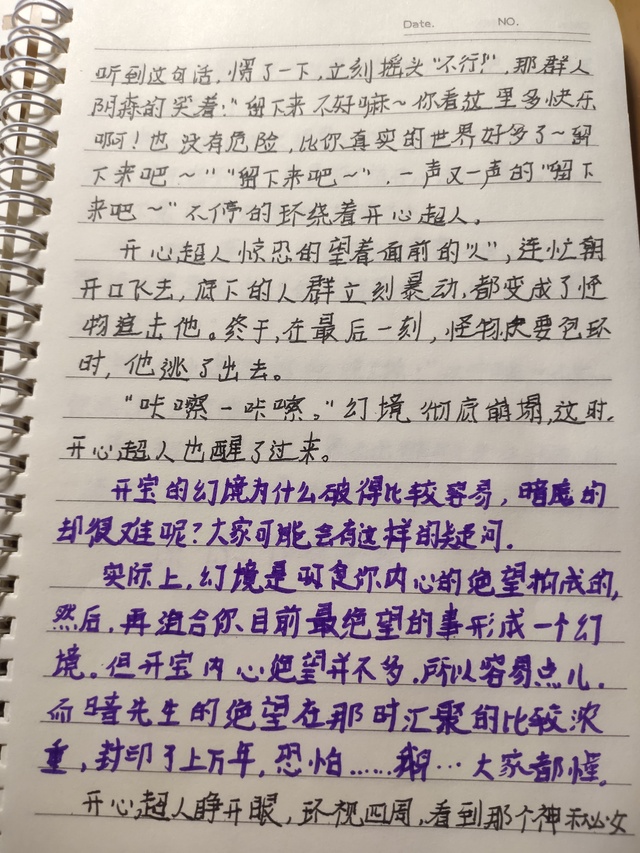 Date. NO.
听到这句话，愣了一下，立刻摇头"不行！"，那群人
阴森的笑着："留下来不好嘛～你看这里多快乐
啊！也没有危险，比你真实的世界好多了～留
下来吧～""留下来吧～"，一声又一声的"留下
来吧～"不停的环绕着开心超人。
开心超人惊恐的望着面前的"人"，连忙朝
开口飞去，底下的人群立刻暴动，都变成了怪
物追击他。终于，在最后一刻，怪物快要包环
时，他逃了出去。
"咔嚓－咔嚓。"幻境彻底崩塌，这时，
开心超人也醒了过来。
开宝的幻境为什么破得比较容易，暗的
却很难呢？大家可能会有这样的疑问．
实际上，幻境是你内心的绝望构成的，
然后，再迎合你目前最绝望的事形成一个幻
境。但开宝内心绝望并不多．所以容易点儿．
而暗先生的绝望在那时汇聚的比较浓
重，封印了上万年，恐怕……大家都懂．
开心超人睁开眼，环视四周，看到那个神秘女